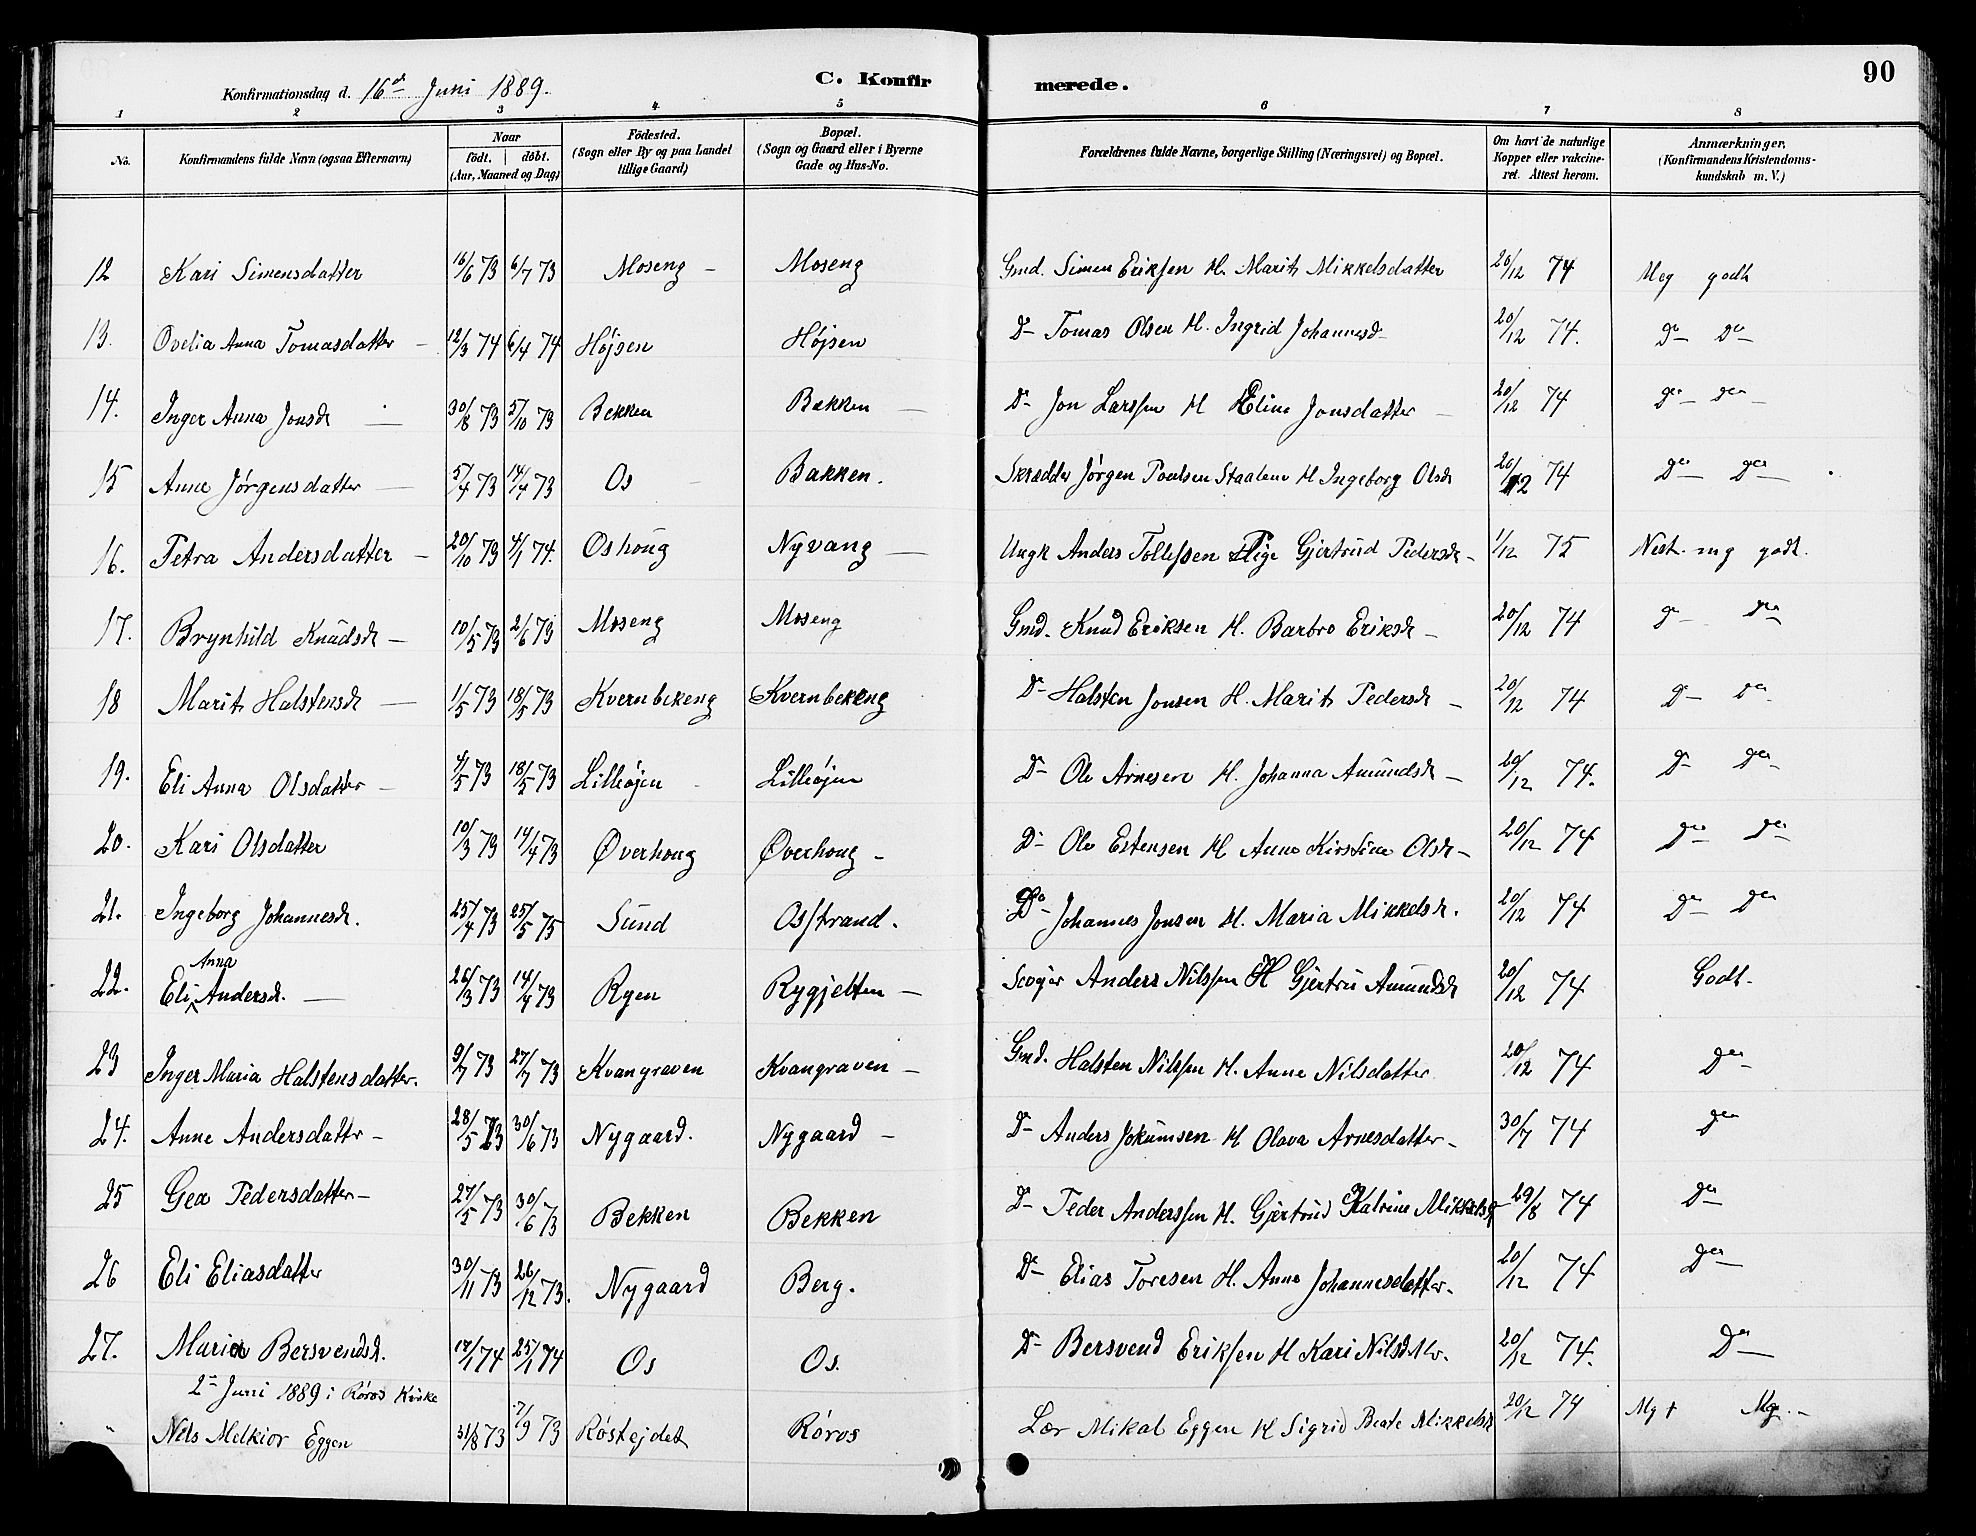 Konfirmationsdag d. 16de Juni 1889. C. Konfirmerede. 90
1 2 3 4 5 6 7 8
No. Konfirmandens fulde Navn (ogsaa Efternavn) Naar födt. döbt. (Aar, Maaned og Dag) Födested. (Sogn eller By og paa Landet tillige Gaard) Bopæl. (Sogn og Gaard eller i Byerne Gade og Hus-No. Forældrenes fulde Navne, borgerlige Stilling (Næringsvei) og Bopæl. Om havt de naturlige Kopper eller vakcineret. Attest herom. Anmærkninger, (Konfirmandens Kristendomskundskab m. V.)
12 Kari Simensdatter 16/6 73 6/7 73 Moseng - Moseng Gmd. Simen Eriksen H. Marit Mikkelsdatter 20/12 74 Meg godt
13. Ovelia Anna Tomasdatter - 12/3 74 6/4 74 Højsen Højsen Do Tomas Olsen H. Ingrid Johannesd 20/12 74. Do Do
14. Inger Anna Jonsdr - 30/8 73 5/10 73 Bekken Bakken - Do Jon Larssen H Eline Jonsdatter - 20/12 74 Do Do
15 Anne Jørgensdatter - 5/4 73 14/4 73 Os - Bakken. Skrædder Jørgen Poulsen Staalene H Ingeborg Olsdr 20/12 74 Do Do
16. Petra Andersdatter - 20/10 73 4/1 74. Oshoug Nyvang - Ungk Anders Tollefsen Pige Gjertrud Pedersdr - 1/12 75 Nest. mg godt.
17. Brynhild Knudsdr - 10/5 73 2/6 73 Moseng Moseng Gmd. Knud Eriksen H. Barbro Eriksdr - 20/12 74 Do Do
18 Marit Halstensdr - 1/5 73 18/5 73 Kvernbekeng Kvernbekeng Do Halsten Jonsen H. Marit Pedersdr - 20/12 74 Do Do
19. Eli Anna Olsdatter - 4/5 73 18/5 73 Lilleøjen - Lilleøjen Do Ole Arnesen H. Johanna Amundsdr - 20/12 74. Do Do
20. Kari Olsdatter 10/3 73 14/4 73 Øverhoug Øverhoug - Do Ole Estensen H Anne Kirstine Olsdr - 20/12 74 Do Do
21. Ingeborg Johannesdr. 25/4 73 25/5 75 Sund Osstrand. Do Johannes Jonsen H. Maria Mikkelsdr. 20/12 74 Do Do
22. Eli Anna Andersdr. - 26/3 73 14/4 73 Ryen Rygjelten - Anders Nilssen H Gjertru Amundsdr 20/12 74 Godt.
23 Inger Maria Halstensdatter. 9/7 73 27/7 73 Kvangraven Kvangraven - Gmd. Halsten Nilssen H. Anne Nilsdatter 20/12 74 Do
24. Anne Andersdattr - 28/5 73 30/6 73 Nygaard. Nygaard - Do Anders Jokumsen H Olava Arnesdatter - 30/7 74 Do
25 Gea Pedersdatter - 27/5 73 30/6 73 Bekken Bekken Do Peder Anderssen H. Gjertrud Katrine Mikkelsdr 29/8 74 Do
26 Eli Eliasdatter 30/11 73 26/12 73. Nygaard Berg. Do Elias Toresen H. Anne Johannesdatter. 20/12 74 Do
27. Maria Bersvendsdr. 17/1 74 25/1 74 Os Os. Do Bersvend Eriksen H Kari Nilsdattr. 20/12 74. Do
2den Juni 1889 i Røros Kirke
" Nils Melkior Eggen 31/8 73 7/9 73 Røstejdet Røros Lær Mikal Eggen H Sigrid Beate Mikkelsdr 20/12 74 Mg + Mg. -